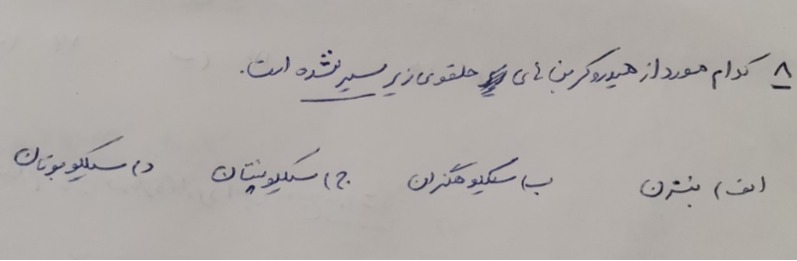 ۸ کدام مورد از هیدروکربن های حلقوی زیر سیر نشده است.
الف) بنزن ب) سیکلو هگزان ج) سیکلو پنتان د) سیکلو بوتان